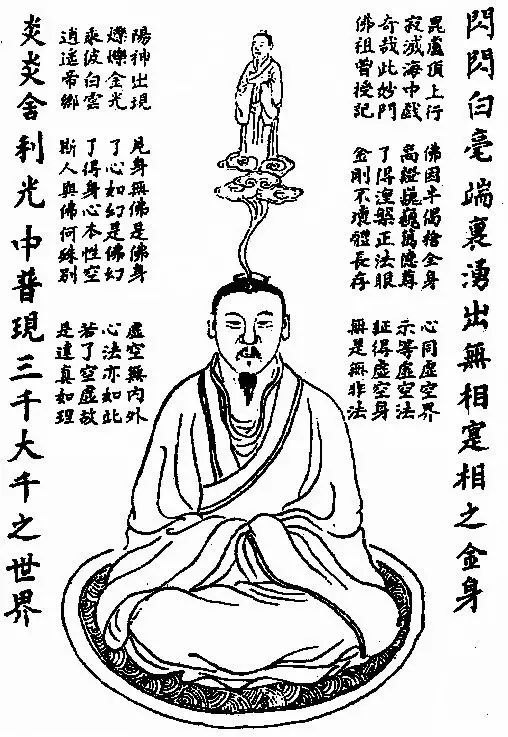 閃閃白毫端裏湧出無相寔相之金身
毘盧頂上行
寂滅海中戲
奇哉此妙門
佛祖曾授記
佛因半偈捨金身
高證巍巍萬德尊
了得涅槃正法眼
金剛不壞體長存
心同虛空界
示等虛空法
証得虛空身
無是無非法
陽神出現
爍爍金光
乘彼白雲
逍遙帝鄉
見身無佛是佛身
了心如幻是佛幻
了得身心本性空
斯人與佛何殊別
虛空無內外
心法亦如此
若了空虛故
是達真如理
炎炎舍利光中普現三千大千之世界